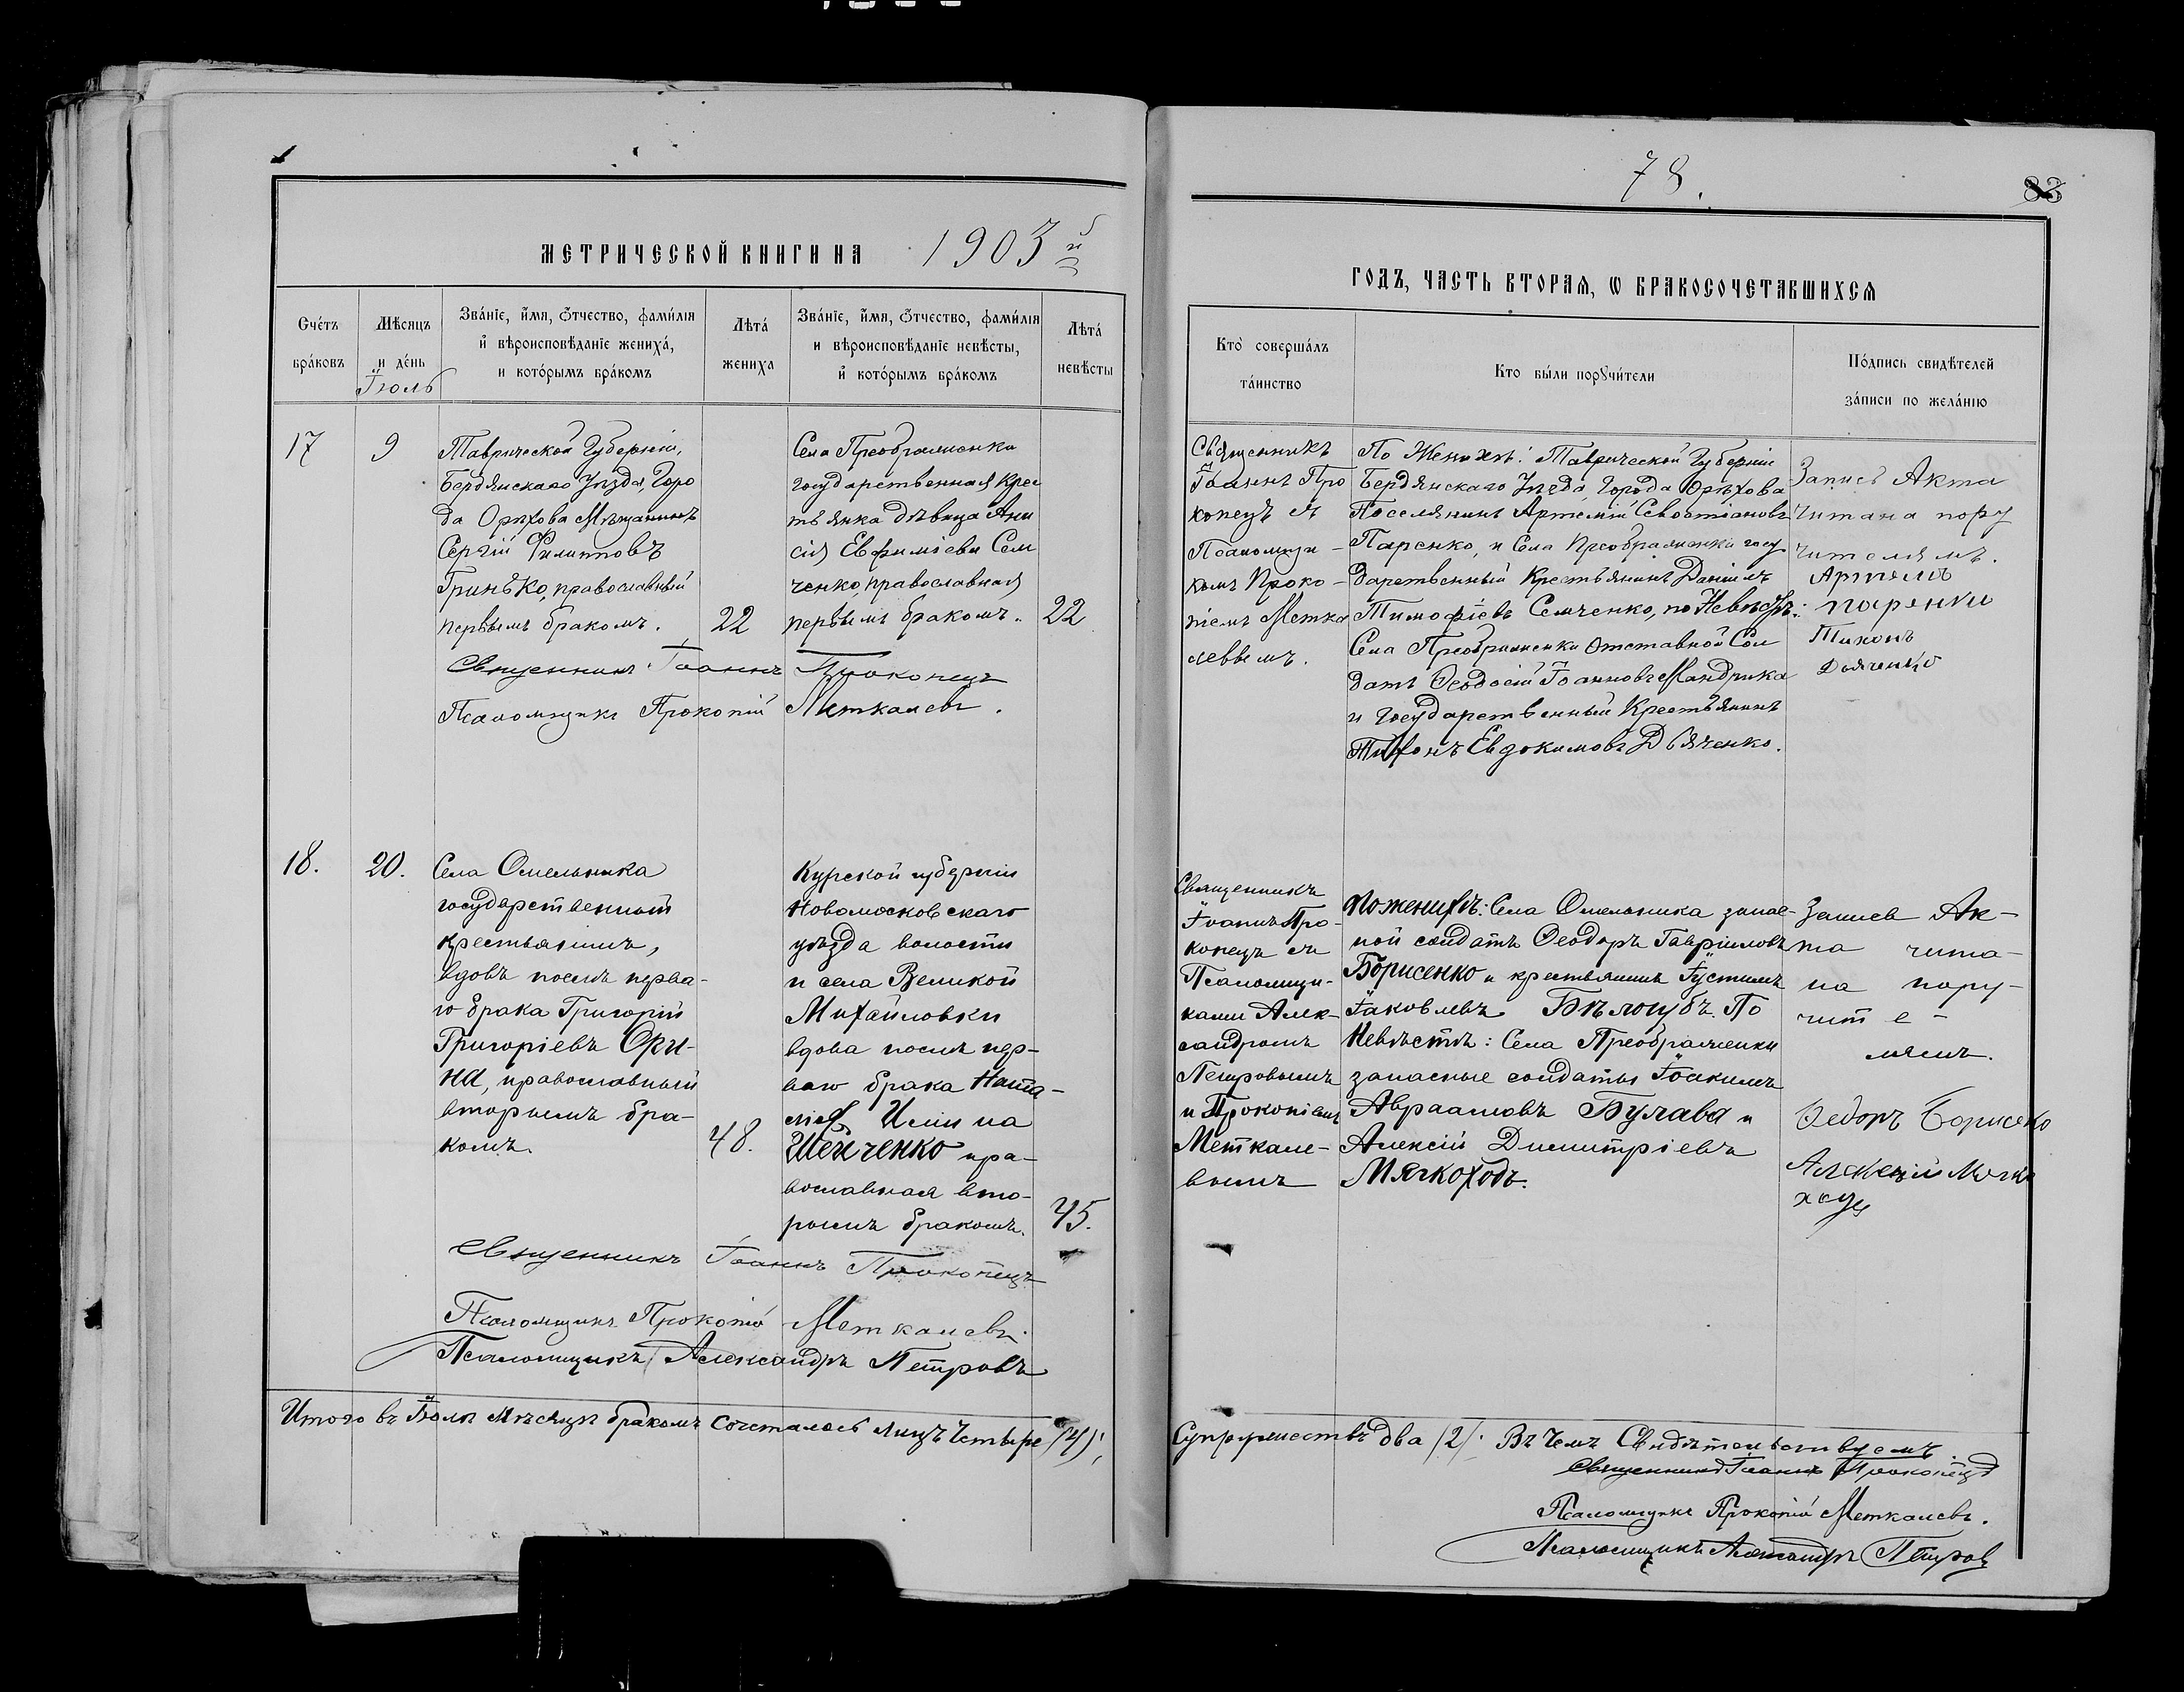 78.
83
МЕТРИЧЕСКОЙ КНИГИ НА 1903й
ГОДЪ, ЧАСТЬ ВТОРАЯ, Ѡ БРАКОСОЧЕТАВШИХСЯ
Счетъ
браковъ
Мѣсяцъ
и день
Іюль
Званіе, имя, ѻтчество, фамилія
и вѣроисповѣданіе жениха,
и которымъ бракомъ
Лѣта
жениха
Званіе, имя, ѻтчество, фамилія
и вѣроисповѣданіе невѣсты,
и которымъ бракомъ
Лѣта
невѣсты
Кто совершалъ
таинство
Кто были порꙋчители
Подпись свидѣтелей
записи по желанію
17
9
Таврической Губерніи,
Бердянскаго Уѣзда, Горо
да Орѣхова Мѣщанинъ
Сергій Филипповъ
Гринько, православный
первымъ бракомъ.
22
Села Преображенки
государственная Крес
тьянка дѣвица Ани
сія Евфиміева Сем
ченко, православная
первымъ бракомъ.
22
Священникъ
Іоаннъ Про
копецъ съ
Псаломщи-
комъ Проко-
піемъ Метка
левымъ.
По Женихѣ: Таврической Губерніи
Бердянскаго Уѣзда, Города Орѣхова
Поселянинъ Артемій Севостіановъ
Паренко, и Села Преображенки госу
дарственный Крестьянинъ Даніилъ
Тимофіевъ Семченко, по Невѣстѣ:
Села Преображенки Отставной Сол
датъ Ѳеодосій Іоанновъ Мандрика
и Государственный Крестьянинъ
Тихонъ Евдокимовъ Дьяченко.
Запись Акта
читана пору
чителямъ.
Артемъ
Паренко
Тихонъ
Дьяченко
Священникъ Іоаннъ Прокопецъ
Псаломщикъ Прокопій Меткалевъ.
18.
20.
Села Омельника
государственный
крестьянинъ,
вдовъ послѣ перва-
го брака Григорій
Григоріевъ Ори-
на, православный
вторымъ бра-
комъ.
48.
Курской губерніи
Новомосковскаго
уѣзда волости
и села Великой
Михайловки
вдова послѣ пер-
ваго брака Ната-
лія Ильина
Шейченко пра-
вославная вто-
рымъ бракомъ.
45.
Священникъ
Іоаннъ Про-
копецъ съ
Псаломщи-
ками Алек-
сандромъ
Петровымъ
и Прокопіемъ
Меткале-
вымъ
По женихѣ: Села Омельника запас-
ной солдатъ Ѳеодоръ Гавріиловъ
Борисенко и крестьянинъ Іустинъ
Іаковлевъ Бѣлогубъ. По
Невѣстѣ: Села Преображенки
запасные солдаты Іоакимъ
Авраамовъ Булава и
Алексій Димитріевъ
Мягкоходъ.
Запись Ак-
та чита-
на пору-
чите-
лямъ.
Федоръ Борисенко
Алексѣй Мягко
ходъ
Священникъ Іоаннъ Прокопецъ
Псаломщикъ Прокопій Меткалевъ.
Псаломщикъ Александръ Петровъ
Итого въ Іюлѣ Мѣсяцѣ бракомъ сочеталось лицъ Четыре (4);
Супружествъ два (2). Въ Чемъ Свидѣтельствуемъ
Священникъ Іоаннъ Прокопецъ
Псаломщикъ Прокопій Меткалевъ.
Псаломщикъ Александръ Петровъ